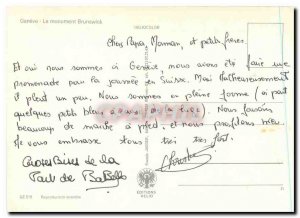 Genève - Le monument Brunswick
Chers Papa, Maman, et petits frères,
Et oui nous sommes à Genève nous avons été faire une
promenade pour la journée en Suisse. Mais malheureusement
il pleut un peu. Nous sommes en pleine forme (à part
quelques petits bleus
Nous faisons
beaucoup de marche à pied, et nous profitons bien.
Je vous embrasse tous très très fort.
Grosses Bises de la
Part de
EDITIONS
Reproduction interdite